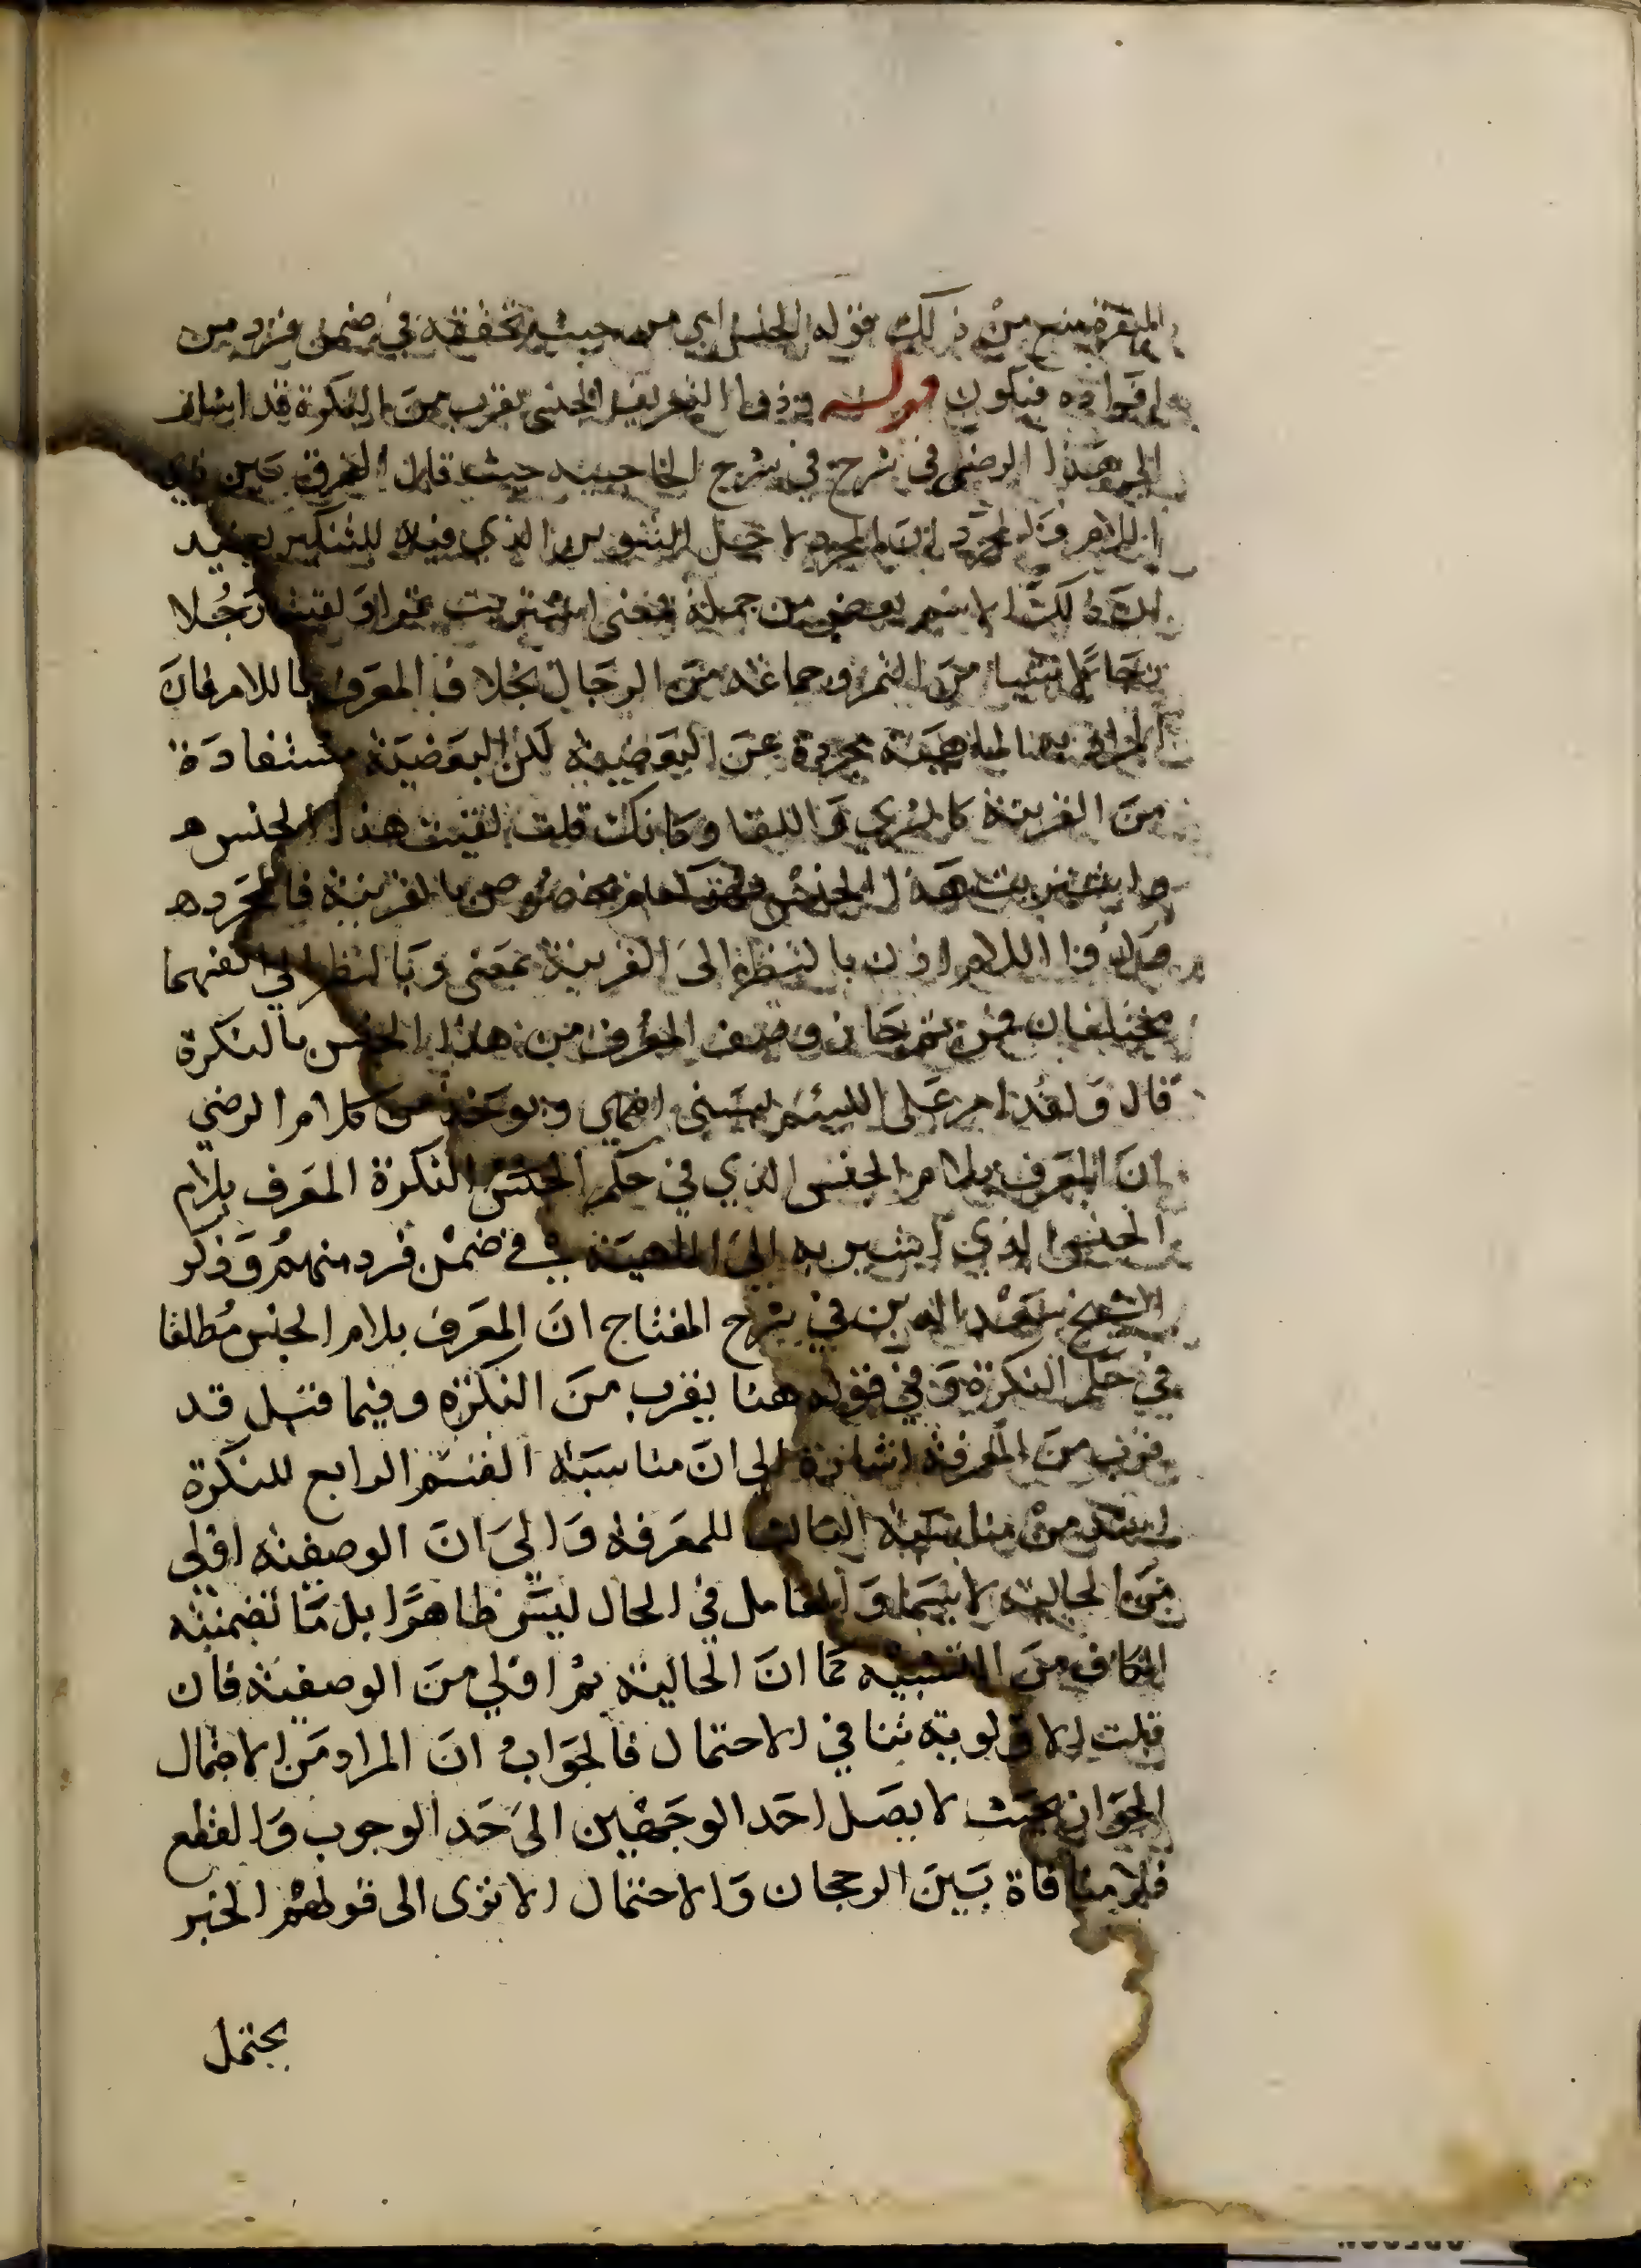 من ذلك قوله الجنس اي من حيث تحققه في ضمن فرد من
افراده فيكون قوله وذو التعريف الجنسي يقرب من النكرة قد اشار
الى هذا الرضي في شرح في شرح الحاجبيه حيث قال الفرق بين ذي
اللام والمجرد ان المجرد لاجل التنوين الذي فيه للتنكير يفيد
ان ذلك الاسم بعض من جملة فمعنى اشتريت تمرا ولقيت رجلا
شيا من التمر وجماعه من الرجال بخلاف المعرف باللام فان
المراد به الماهية مجردة عن البعضيه لكن البعضية مستفادة
من القرينة كالشرى واللقا وكانك قلت لقيت هذا الجنس
واشتريت هذا الجنس فهو كعام مخصوص بالقرينة فالمجرد
وذو اللام اذن بالنظر الى القرينة بمعنى وبالنظر الى انفسهما
مختلفان فمن ثم جاز وصف المعرف من هذا الجنس بالنكرة
قال ولقد امر على اللئيم يسبني انتهى ويوخذ من كلام الرضي
ان المعرف بلام الجنس الذي في حكم الجنس النكرة المعرف بلام
الجنس الذي اشير به الى الماهية في ضمن فرد منهم وذكر
الشيخ سعد الدين في شرح المفتاح ان المعرف بلام الجنس مطلقا
في حكم النكرة وفي قوله هنا يقرب من النكرة وفيما قبل قد
قرب من المعرفة اشارة الى ان مناسبة القسم الرابع للنكرة
اشد من مناسبة الثالث للمعرفه والى ان الوصفية اولى
من الحاليه لا سيما والعامل في الحال ليس ظاهرا بل ما تضمنته
الكاف من التشبيه كما ان الحالية ثم اولى من الوصفية فان
قلت الاولوية تنافي الاحتمال فالجواب ان المراد من الاحتمال
الجواز بحيث لا يصل احد الوجهين الى حد الوجوب والقطع
فلا منافاة بين الرجحان والاحتمال الا ترى الى قولهم الخبر
يحتمل